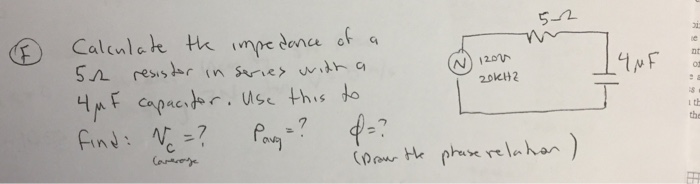 F Calculate the impedance of a
5Ω resistor in series with a
4μF capacitor. Use this to
find: Vc =? Pavg =? ϕ=?
(average
(Draw the phase relation)
5Ω
N 120V
20KHZ
4μF